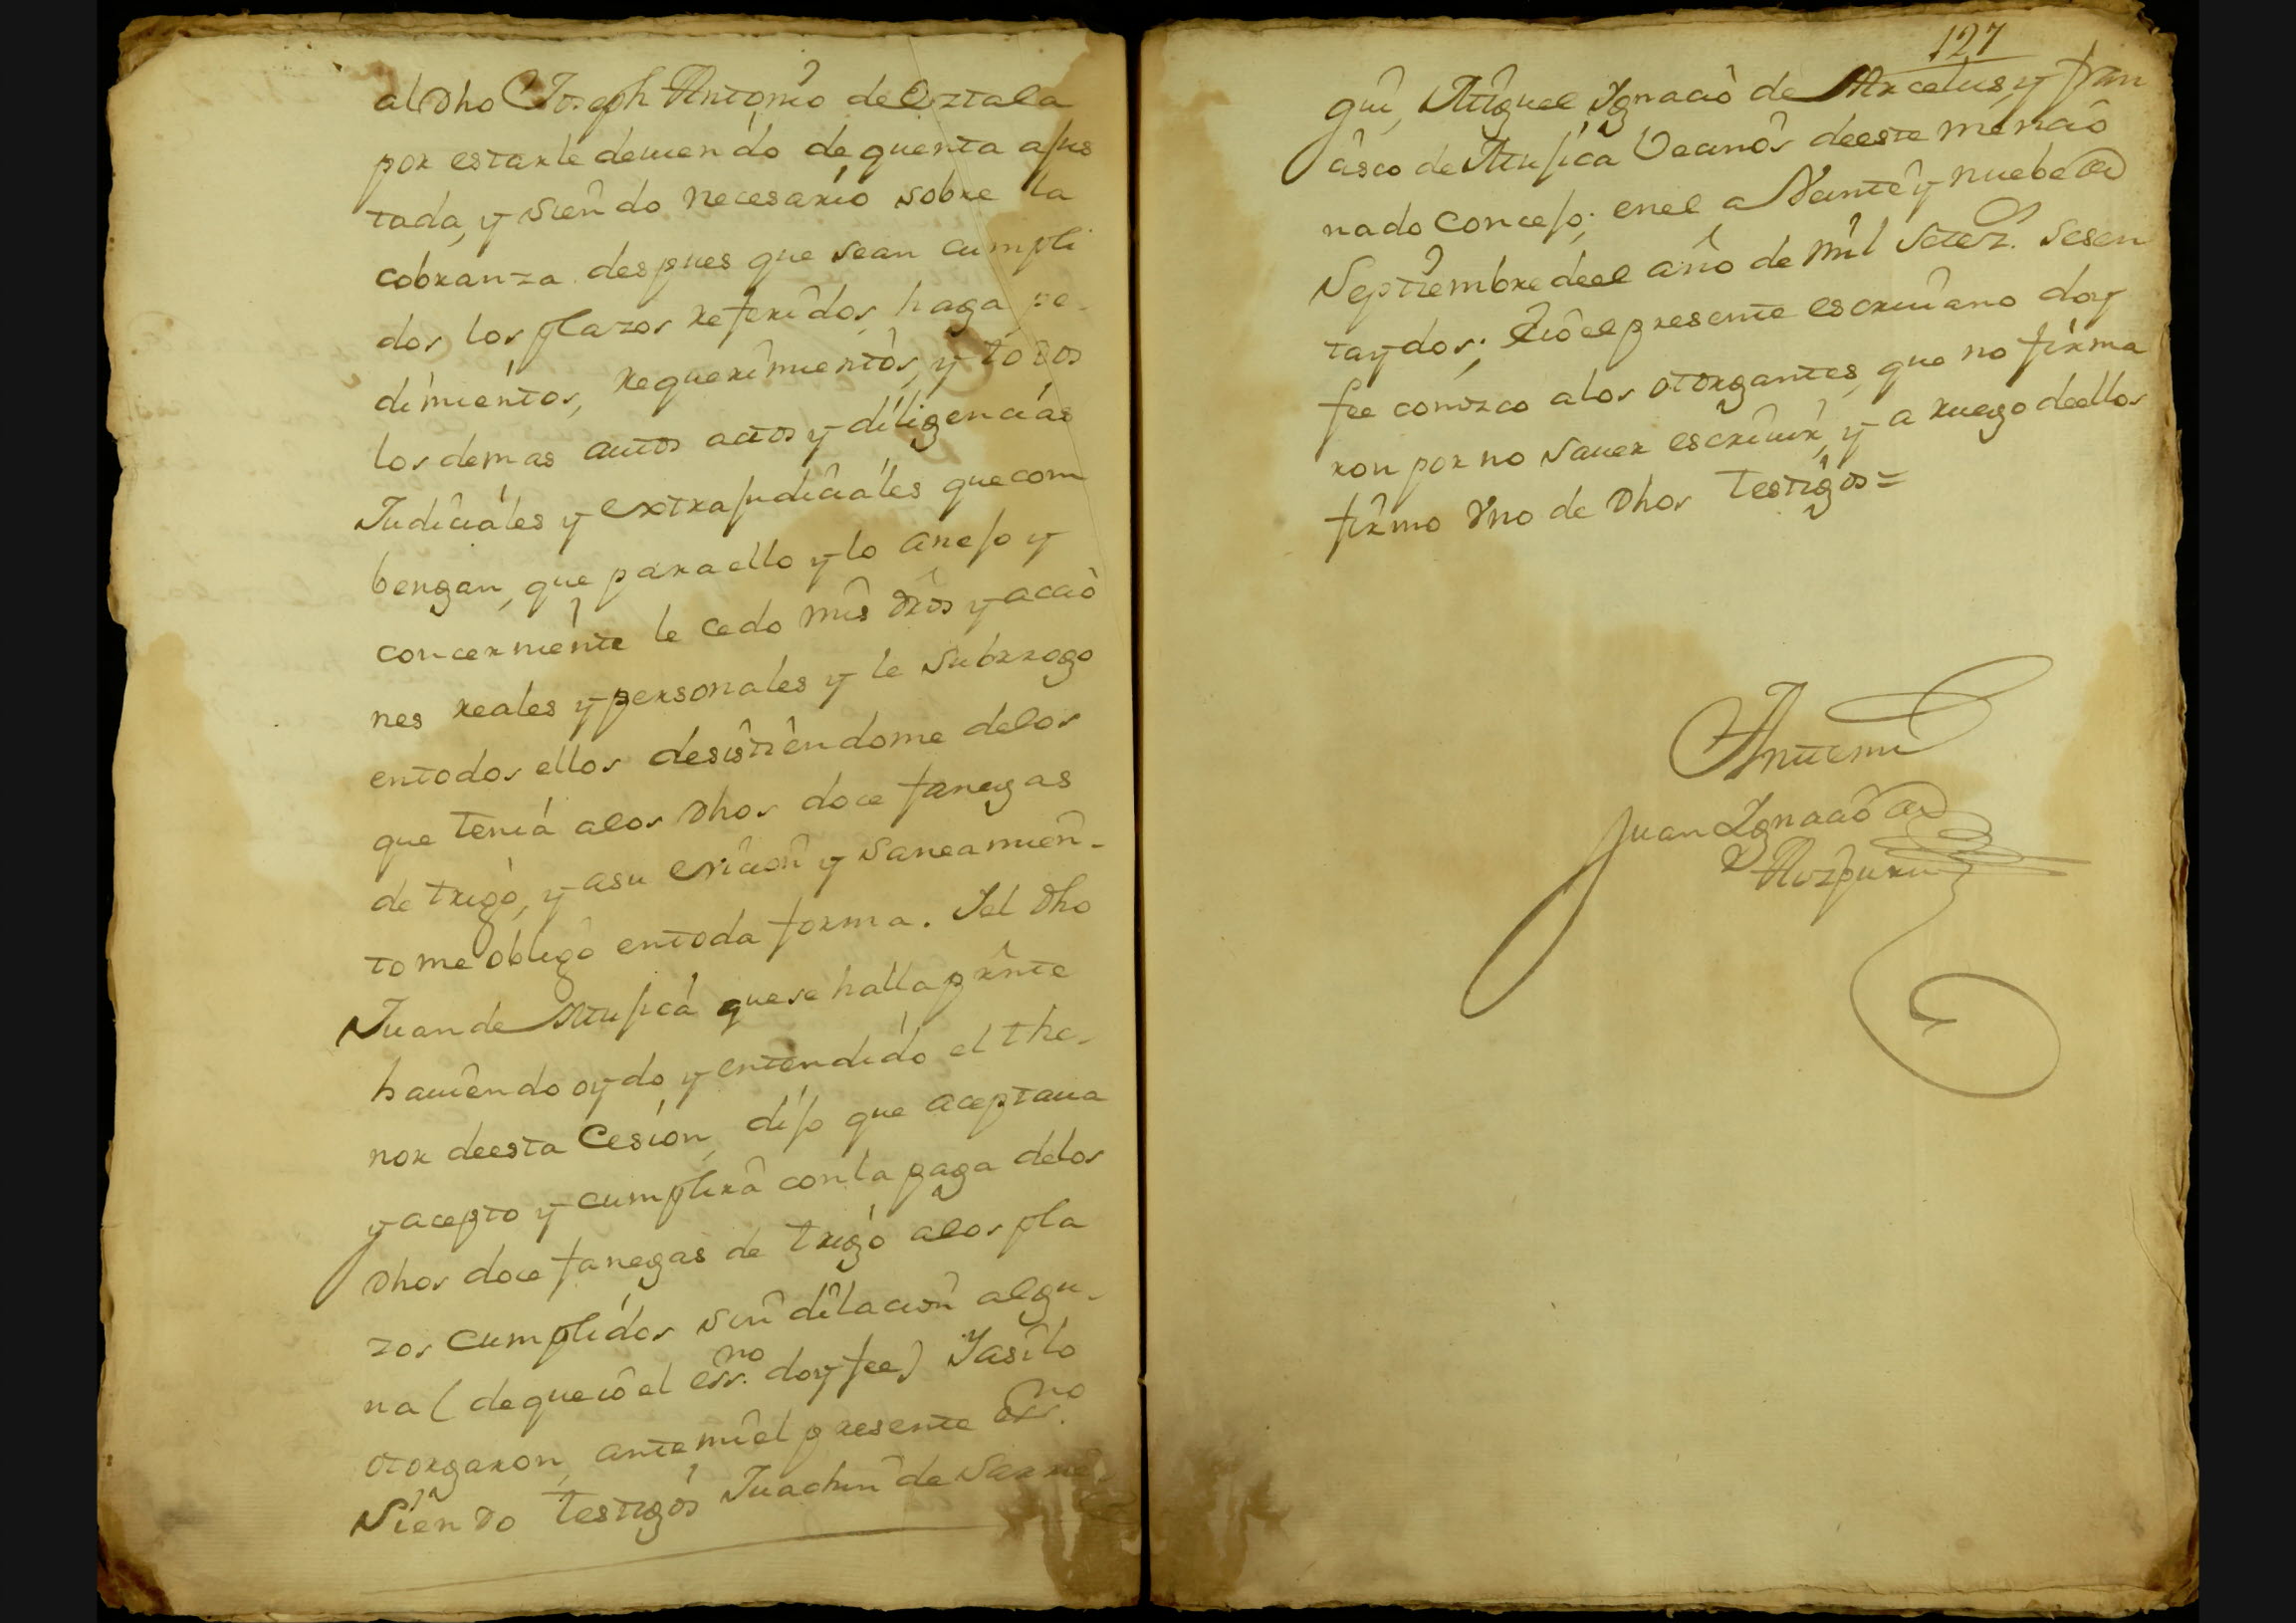 al dho Joseph Antonio de Oztala
por estarle deviendo de quenta ajus
tada, y siendo necesario sobre la
cobranza despues que sean cumpli
dos los plazos referidos, haga pe-
dimientos, requerimientos, y todos
los demas autos actos y diligencias
Judiciales y extrajudiciales que com
bengan, que para ello y lo anejo y
concerniente le cedo mis dros y accio
nes reales y personales y le subrrogo
en todos ellos desistiendome de los
que tenia a los dhos doce fanegas
de trigo, y a su eviccion y saneamien-
to me obligo en toda forma. Y el dho
Juan de Mujica que se halla prnte
haviendo oydo y entendido el the-
nor de esta Cesion, dijo que aceptava
y acepto y cumplira con la paga de los
dhos doce fanegas de trigo a los pla
zos cumplidos sin dilacion algu-
na (de que io el ess.no doy fee) Y asi lo
otorgaron, ante mi el presente ess.no
siendo testigos Juachin de
127
gui, Miguel Ignacio de Arcelus, y fran
cisco de Mujica Vecinos de este mencio
nado Concejo; en el a Veinte y nuebe de
Septiembre de el año de mil setez.s sesen
ta y dos; E io el presente escrivano doy
fee conozco a los otorgantes, que no firma
ron por no saver escrivir, y a ruego de ellos
firmo Uno de dhos testigos =
Ante mi
Juan Ignacio de
Aizpuru